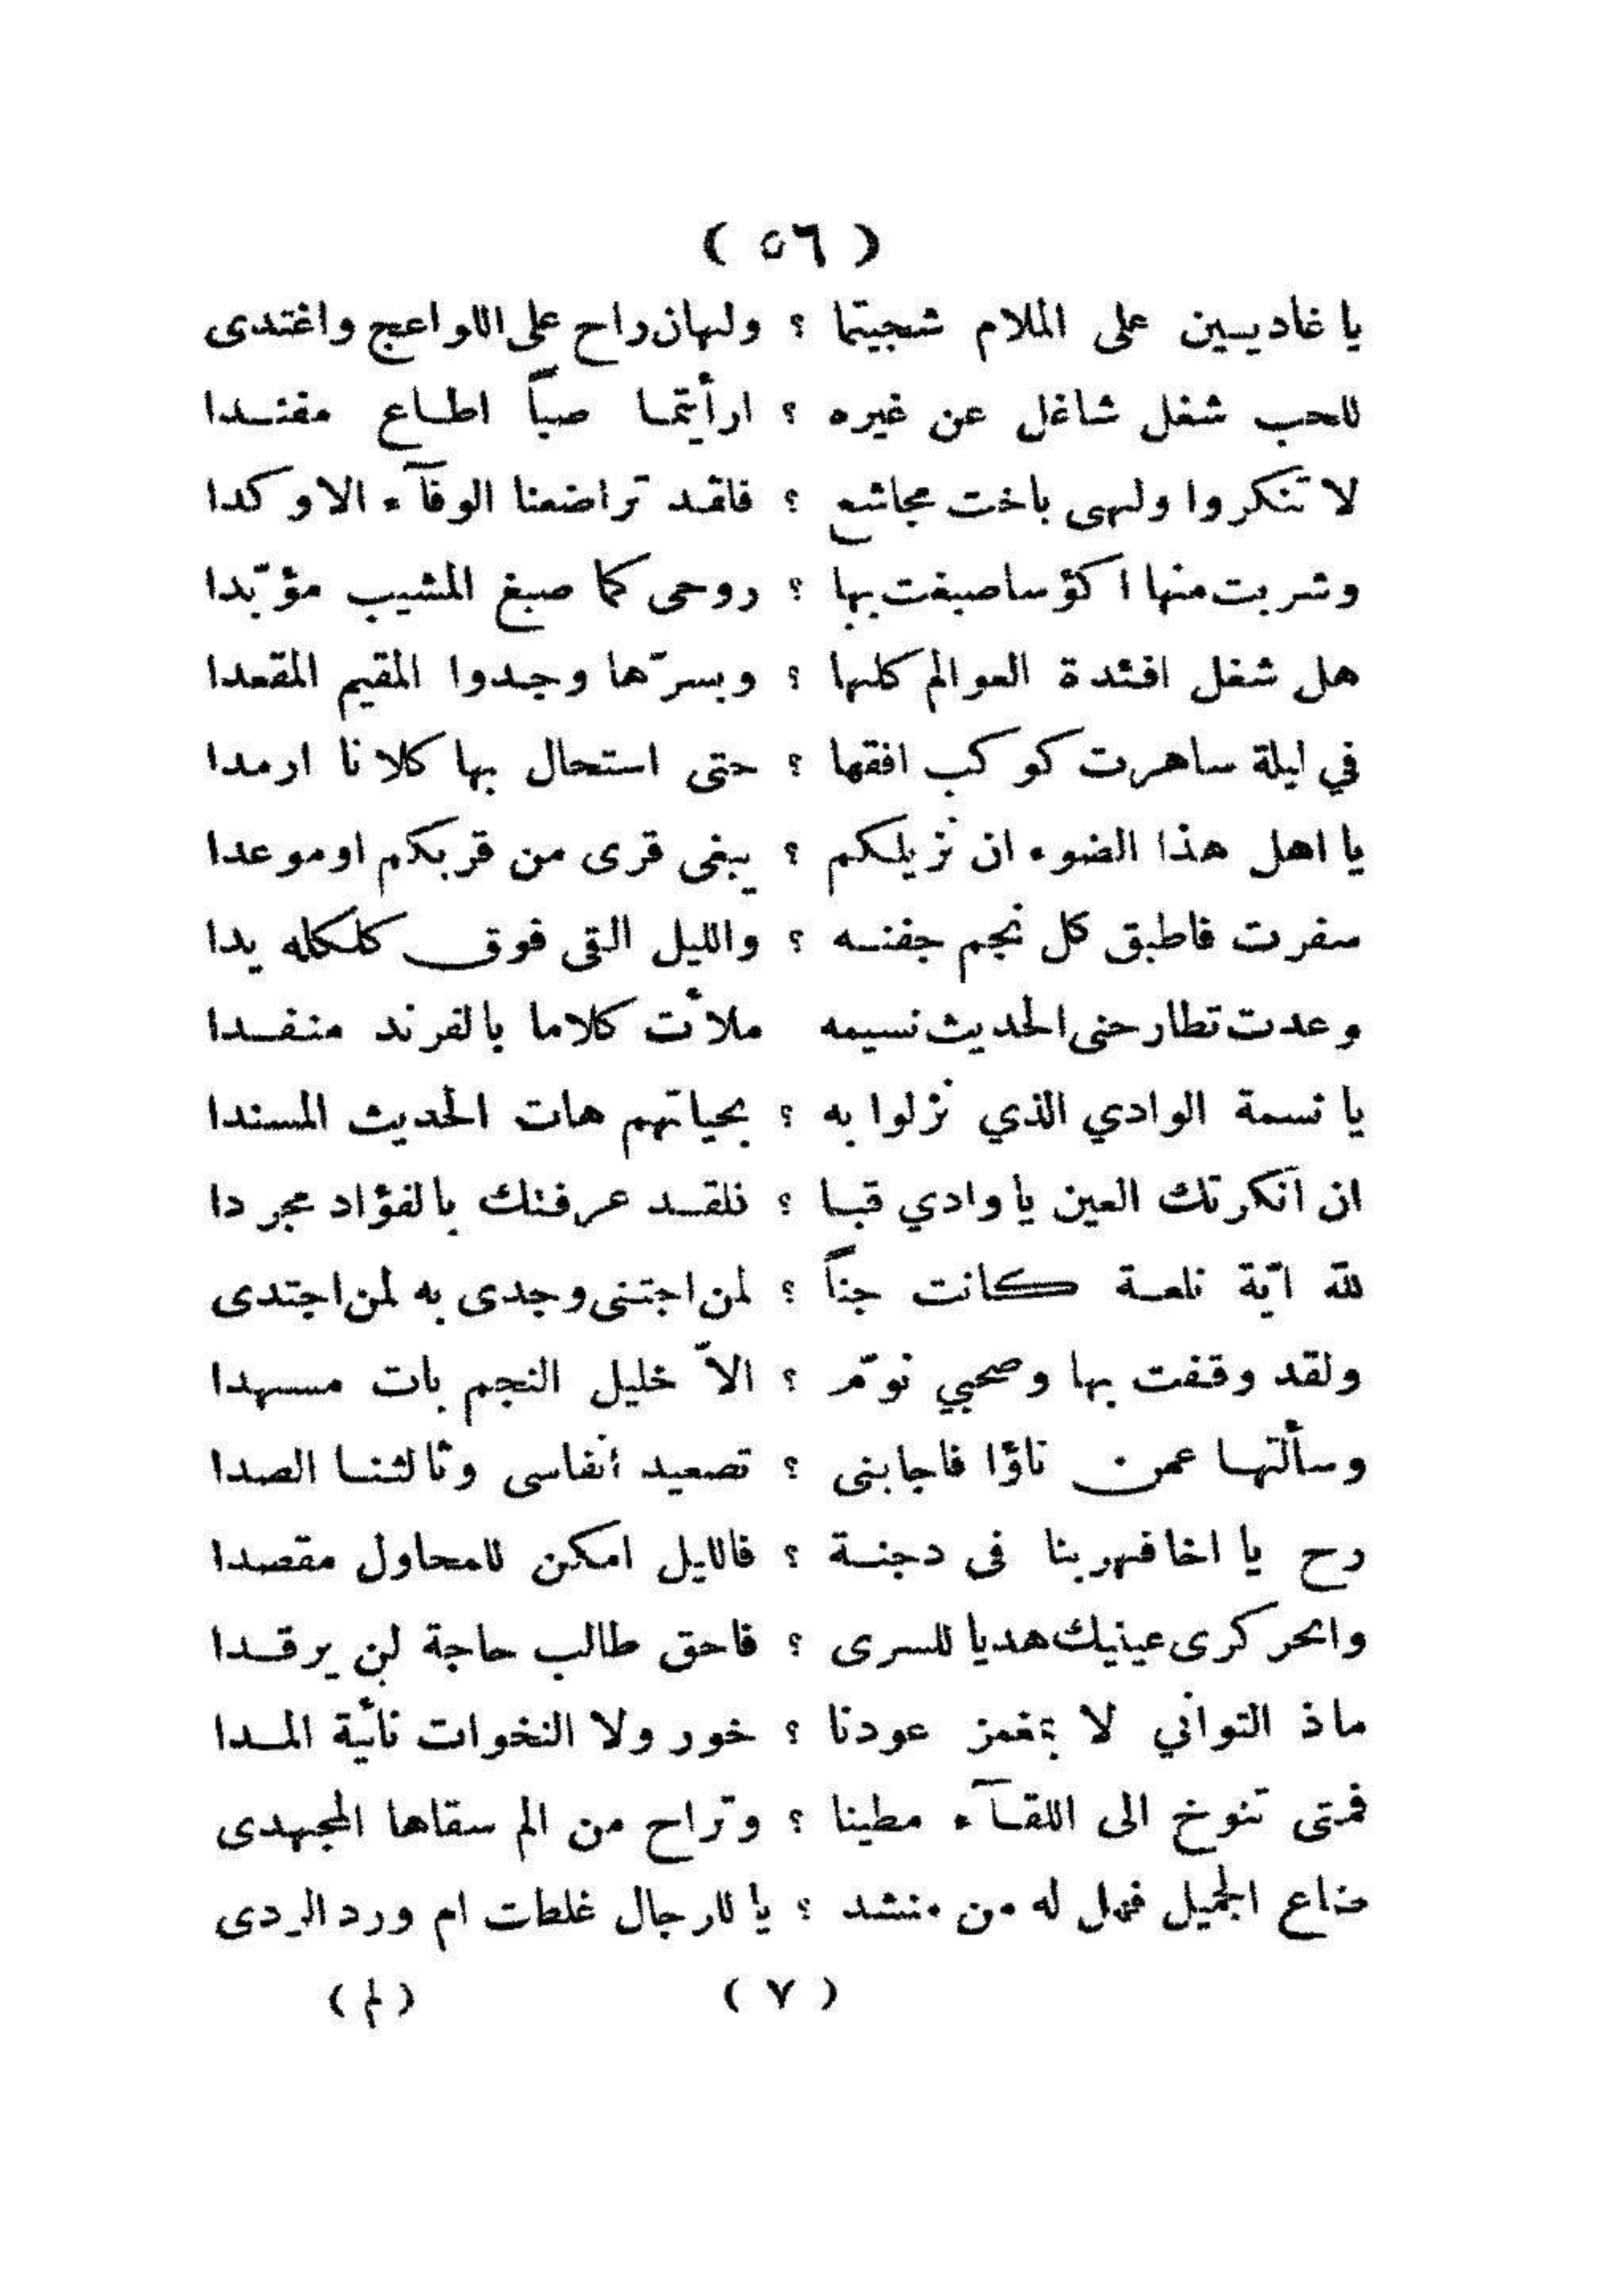 ( ٥٦ )
يا غاديين على الملام شجيتما ؟ ولهان راح على اللواعج واغتدى
للحب شغل شاغل عن غيره ؟ ارأيتما صباً اطاع مفندا
لا تنكروا ولهى باخت مجاشع ؟ فلقد تراضعنا الوفآء الاوكدا
وشربت منها اكؤسا صبغت بها ؟ روحى كما صبغ المشيب مؤبّدا
هل شغل افئدة العوالم كلها ؟ وبسرّها وجدوا المقيم المقعدا
في ليلة ساهرت كوكب افقها ؟ حتى استحال بها كلانا ارمدا
يا اهل هذا الضوء ان نزيلكم ؟ يبغى قرى من قربكم او موعدا
سفرت فاطبق كل نجم جفنه ؟ والليل القى فوق كلكله يدا
وعدت تطارحنى الحديث نسيمه ملأت كلاما بالفرند منفدا
يا نسمة الوادي الذي نزلوا به ؟ بحياتهم هات الحديث المسندا
ان انكرتك العين يا وادي قبا ؟ فلقد عرفنك بالفؤاد مجردا
لله ايّة تلعة كانت جناً ؟ لمن اجتنى وجدى به لمن اجتدى
ولقد وقفت بها وصحبي نوّم ؟ الاّ خليل النجم بات مسهدا
وسألتها عمن ناؤا فاجابنى ؟ تصعيد انفاسى وثالثنا الصدا
رح يا اخا فهر بنا فى دجنة ؟ فالليل امكن للمحاول مقصدا
وانحر كرى عينيك هديا للسرى ؟ فاحق طالب حاجة لن يرقدا
ماذ التوانى لا بمغمز عودنا ؟ خور ولا النخوات نائية المدا
فمتى تنوخ الى اللقآء مطينا ؟ وتراح من الم سقاها المجهدى
ضاع الجميل فهل له من منشد ؟ يا للرجال غلطات ام ورد الردى
( ٧ ) (لم)